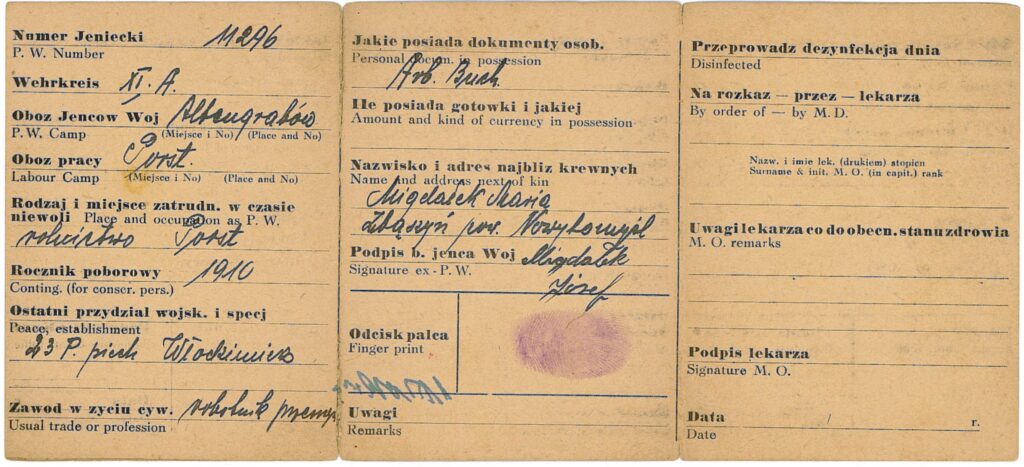 Numer Jeniecki 11296
P. W. Number
Wehrkreis XI. A.
Oboz Jencow Woj Altengrabów
P.W. Camp (Miejsce i No) (Place and No)
Oboz pracy Porst.
Labour Camp (Miejsce i No) (Place and No)
Rodzaj i miejsce zatrudn. w czasie
niewoli Place and occupation as P. W.
rolnictwo Porst
Rocznik poborowy 1910
Conting. (for conscr. pers.)
Ostatni przydzial wojsk. i specj
Peace, establishment
23 P. piech Włodzimierz
Zawod w zyciu cyw. robotnik przemys
Usual trade or profession
Jakie posiada dokumenty osob.
Personal docum. in possession
Arb. Buch.
Ile posiada gotowki i jakiej
Amount and kind of currency in possession
Nazwisko i adres najbliz krewnych
Name and address next of kin
Migdałek Maria
Zbąszyń pow. Nowytomyśl
Podpis b. jenca Woj Migdałek
Signature ex-P.W. Józef
Odcisk palca
Finger print
Uwagi
Remarks
Przeprowadz dezynfekcja dnia
Disinfected
Na rozkaz — przez — lekarza
By order of — by M. D.
Nazw. i imie lek. (drukiem) stopien
Surname & init. M. O. (in capit.) rank
Uwagi lekarza co do obecn. stanu zdrowia
M. O. remarks
Podpis lekarza
Signature M. O.
Data / r.
Date